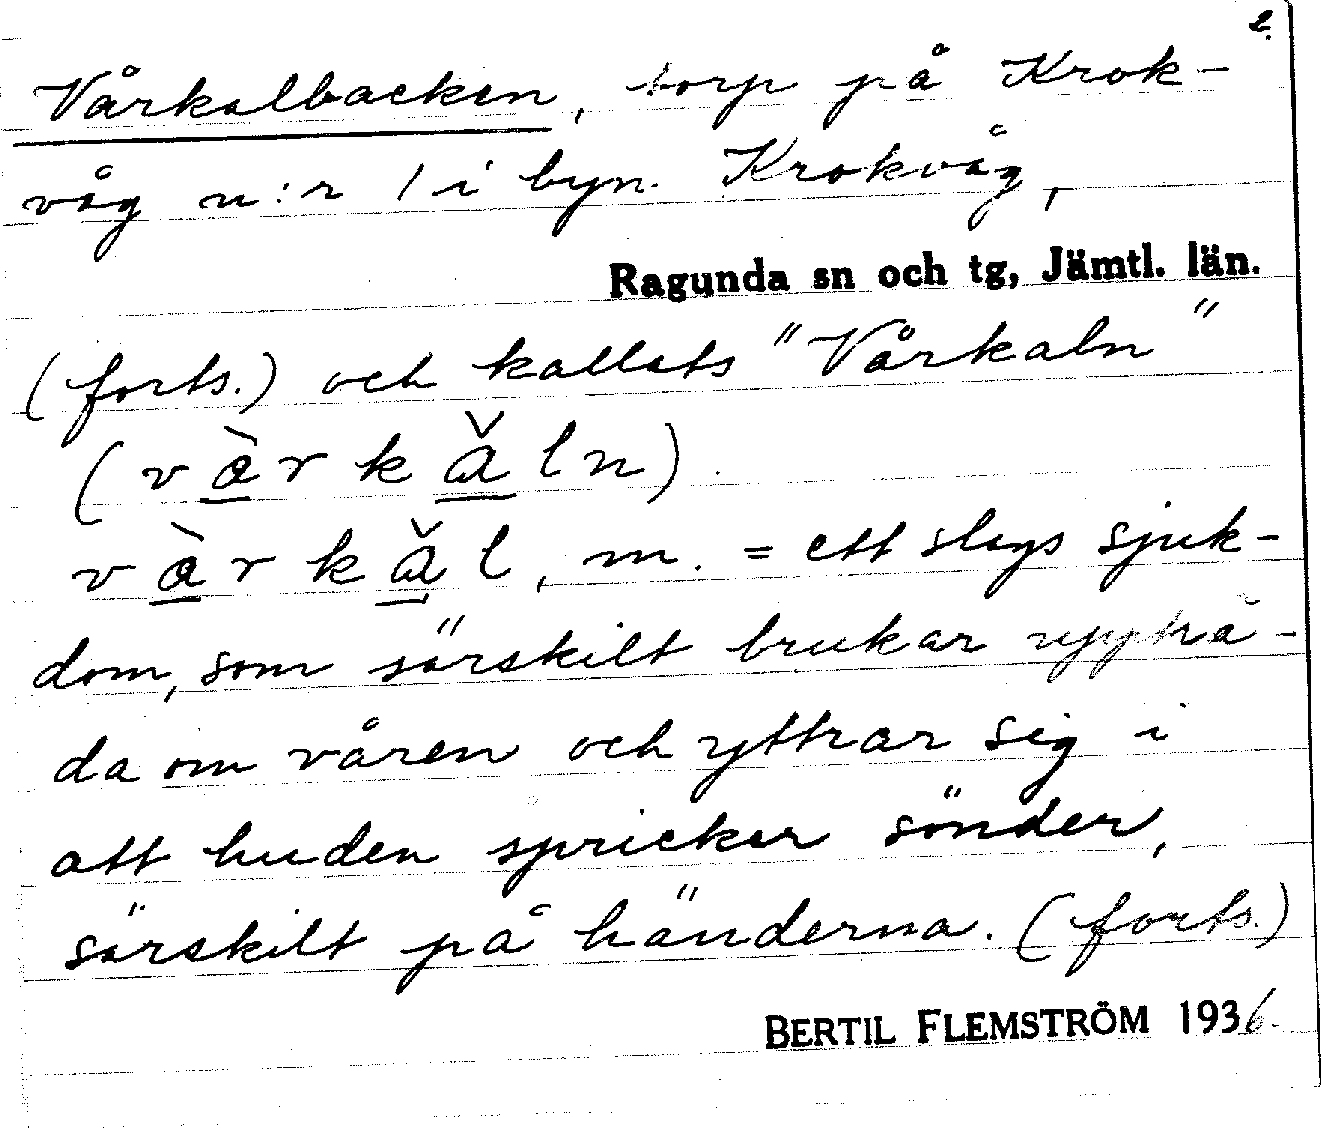 2.
Vårkalbacken, torp på Krok-
våg n:r 1 i byn Krokvåg,
Ragunda sn och tg, Jämtl. län.
(forts.) och kallats "Vårkaln"
(v å̀ r k ǎ l n).
v å̀ r k ǎ l, m. = ett slags sjuk-
dom, som särskilt brukar uppträ-
da om våren och yttrar sig i
att huden spricker sönder,
särskilt på händerna. (forts.)
BERTIL FLEMSTRÖM 1936.